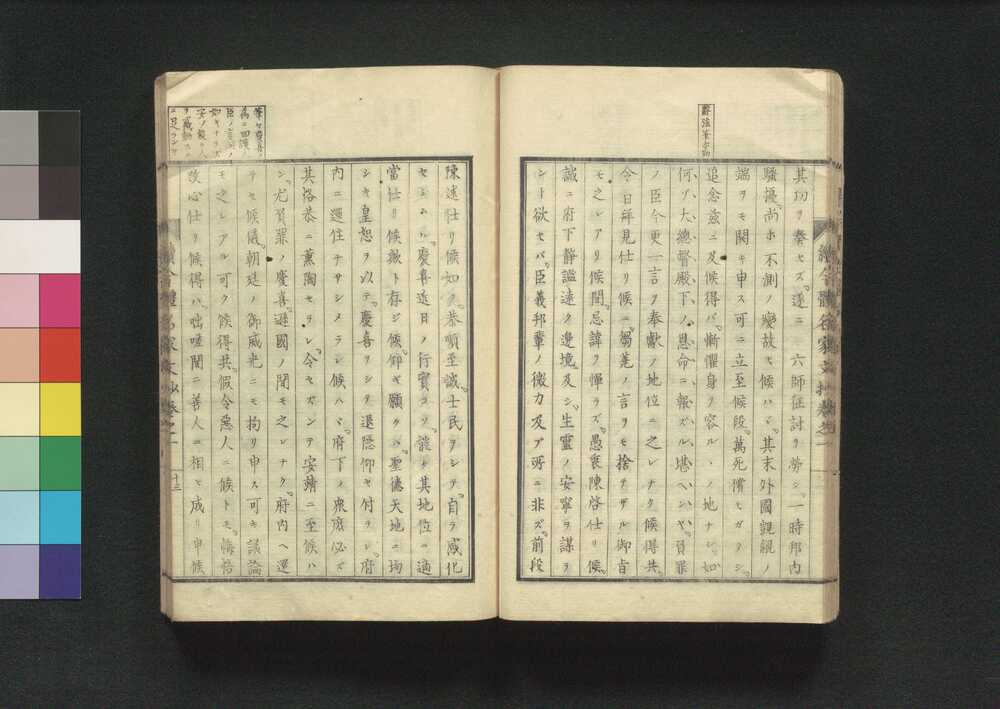 其功ヲ奏セズ。遂ニ六師征討ヲ勞シ。一時邦内
騒擾。尚ホ不測ノ變故モ候ハヾ。其末外國覬覦ノ
端ヲモ開キ申ス可ニ立至候段。萬死償ヒガタシ。
追念玆ニ及候得バ。慚懼身ヲ容ルヽノ地ナシ。如
何ゾ大總督殿下ノ恩命ニ報ズルニ堪ヘンヤ。負罪
ノ臣今更一言ヲ奉獻ノ地位ニ之レナク候得共。
今日拜見仕リ候ニ。芻蕘ノ言ヲモ捨テザル御旨
モ之レアリ候間。忌諱ヲ憚ラズ。愚衷陳啓仕リ候。
誠ニ府下靜謐遠ク邊境ニ及ビ。生靈ノ安寧ヲ謀ラ
ント欲セバ。臣義邦輩ノ微力及ブ所ニ非ズ。前段
陳述仕リ候如ク。恭順至誠。士民ヲシテ自ラ感化
セシムルハ。慶喜近日ノ行實コソ。能ク其地位ニ適
當仕リ候歟ト存ジ候。仰ギ願クハ。聖德天地ニ均
シキ皇恕ヲ以テ。慶喜ヲシテ退隱仰セ付ラレ。府
内ニ還住ナサシメラレ候ハヾ。府下ノ衆庶必ズ
其恪恭ニ薰陶セラレ。令セズシテ安靖ニ至候ハ
ン。尤負罪ノ慶喜。遜國ノ聞モ之レナク。府内ヘ還
ラセ候儀。朝廷ノ御威光ニモ拘リ申ス可キ議論
モ之レアル可ク候得共。假令惡人ニ候トモ。悔悟
改心仕リ候得ハ。咄嗟間ニ善人ニ相モ成リ申候